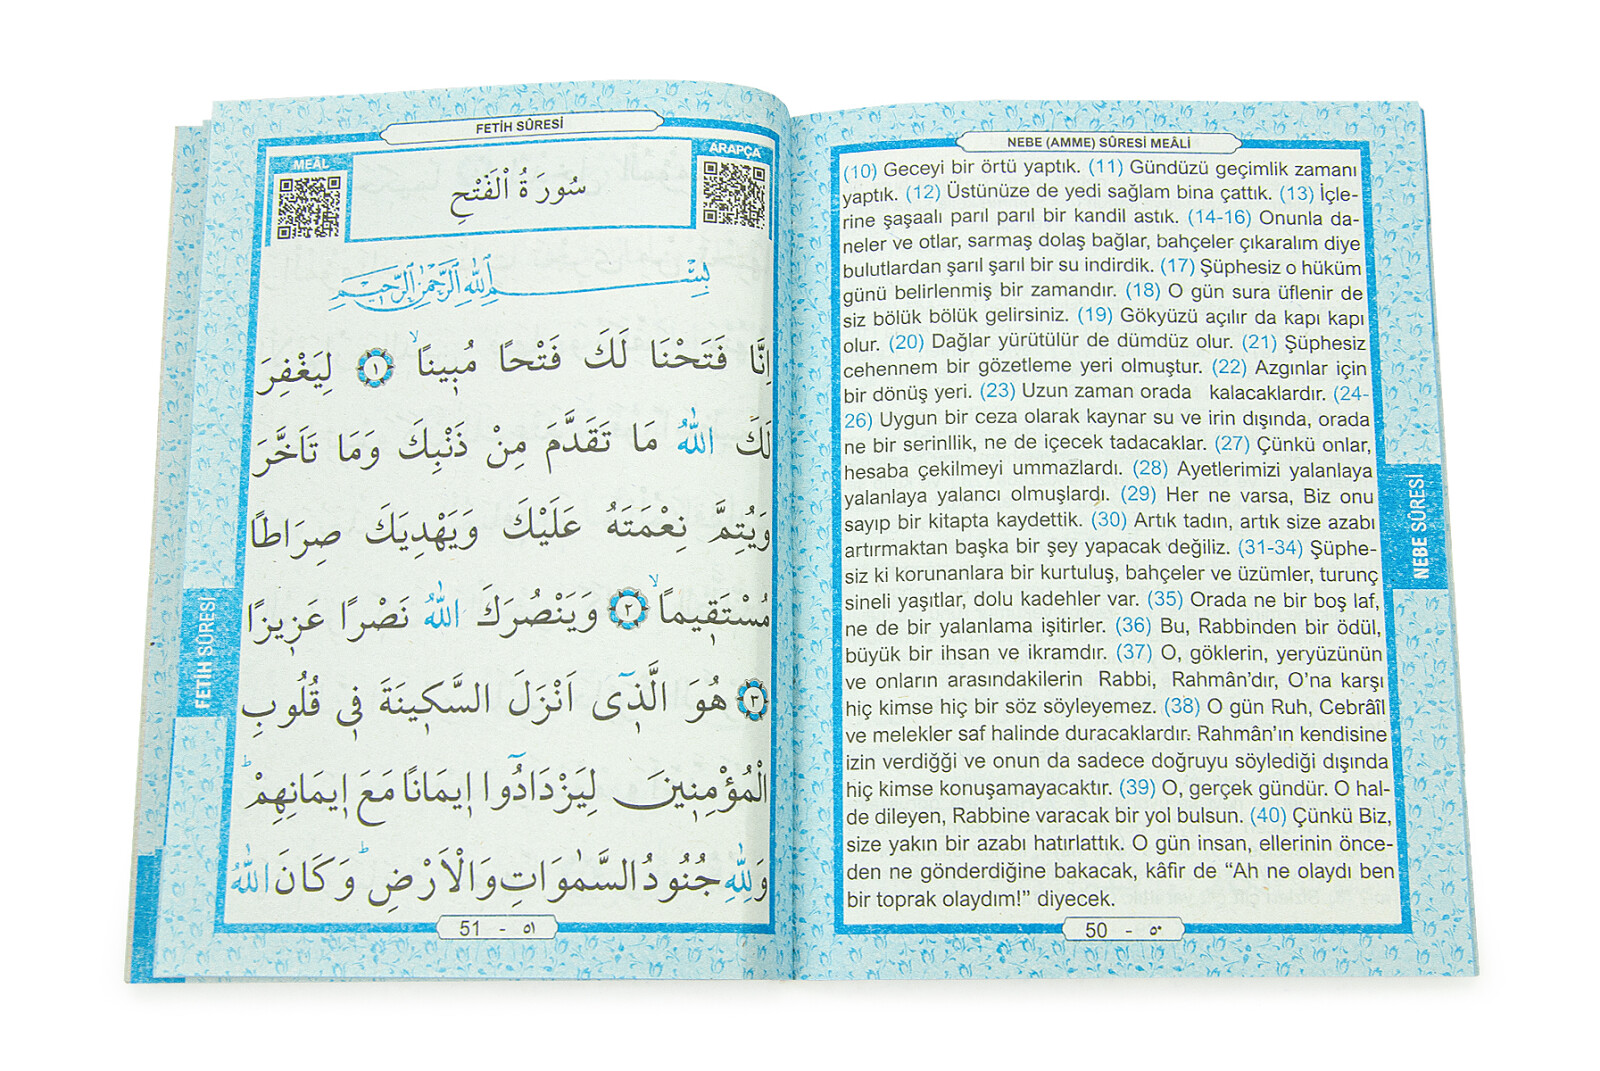 NEBE (AMME) SÛRESİ MEÂLİ
(10) Geceyi bir örtü yaptık. (11) Gündüzü geçimlik zamanı
yaptık. (12) Üstünüze de yedi sağlam bina çattık. (13) İçle-
rine şaşaalı parıl parıl bir kandil astık. (14-16) Onunla da-
neler ve otlar, sarmaş dolaş bağlar, bahçeler çıkaralım diye
bulutlardan şarıl şarıl bir su indirdik. (17) Şüphesiz o hüküm
günü belirlenmiş bir zamandır. (18) O gün sura üflenir de
siz bölük bölük gelirsiniz. (19) Gökyüzü açılır da kapı kapı
olur. (20) Dağlar yürütülür de dümdüz olur. (21) Şüphesiz
cehennem bir gözetleme yeri olmuştur. (22) Azgınlar için
bir dönüş yeri. (23) Uzun zaman orada kalacaklardır. (24-
26) Uygun bir ceza olarak kaynar su ve irin dışında, orada
ne bir serinllik, ne de içecek tadacaklar. (27) Çünkü onlar,
hesaba çekilmeyi ummazlardı. (28) Ayetlerimizi yalanlaya
yalanlaya yalancı olmuşlardı. (29) Her ne varsa, Biz onu
sayıp bir kitapta kaydettik. (30) Artık tadın, artık size azabı
artırmaktan başka bir şey yapacak değiliz. (31-34) Şüphe-
siz ki korunanlara bir kurtuluş, bahçeler ve üzümler, turunç
sineli yaşıtlar, dolu kadehler var. (35) Orada ne bir boş laf,
ne de bir yalanlama işitirler. (36) Bu, Rabbinden bir ödül,
büyük bir ihsan ve ikramdır. (37) O, göklerin, yeryüzünün
ve onların arasındakilerin Rabbi, Rahmân’dır, O’na karşı
hiç kimse hiç bir söz söyleyemez. (38) O gün Ruh, Cebrâîl
ve melekler saf halinde duracaklardır. Rahmân’ın kendisine
izin verdiğği ve onun da sadece doğruyu söylediği dışında
hiç kimse konuşamayacaktır. (39) O, gerçek gündür. O hal-
de dileyen, Rabbine varacak bir yol bulsun. (40) Çünkü Biz,
size yakın bir azabı hatırlattık. O gün insan, ellerinin önce-
den ne gönderdiğine bakacak, kâfir de “Ah ne olaydı ben
bir toprak olaydım!” diyecek.
NEBE SÛRESİ
50 - ٥٠
FETİH SÛRESİ
MEÂL
ARAPÇA
سُورَةُ الْفَتْحِ
بِسْمِ اللّٰهِ الرَّحْمٰنِ الرَّحٖيمِ
اِنَّا فَتَحْنَا لَكَ فَتْحًا مُبٖينًاۙ ١ لِيَغْفِرَ
لَكَ اللّٰهُ مَا تَقَدَّمَ مِنْ ذَنْبِكَ وَمَا تَاَخَّرَ
وَيُتِمَّ نِعْمَتَهُ عَلَيْكَ وَيَهْدِيَكَ صِرَاطًا
مُسْتَقٖيمًاۙ ٢ وَيَنْصُرَكَ اللّٰهُ نَصْرًا عَزٖيزًا
٣ هُوَ الَّذٖٓى اَنْزَلَ السَّكٖينَةَ فٖى قُلُوبِ
الْمُؤْمِنٖينَ لِيَزْدَادُٓوا اٖيمَانًا مَعَ اٖيمَانِهِمْؕ
وَلِلّٰهِ جُنُودُ السَّمٰوَاتِ وَالْاَرْضِؕ وَكَانَ اللّٰهُ
FETİH SÛRESİ
51 - ٥١